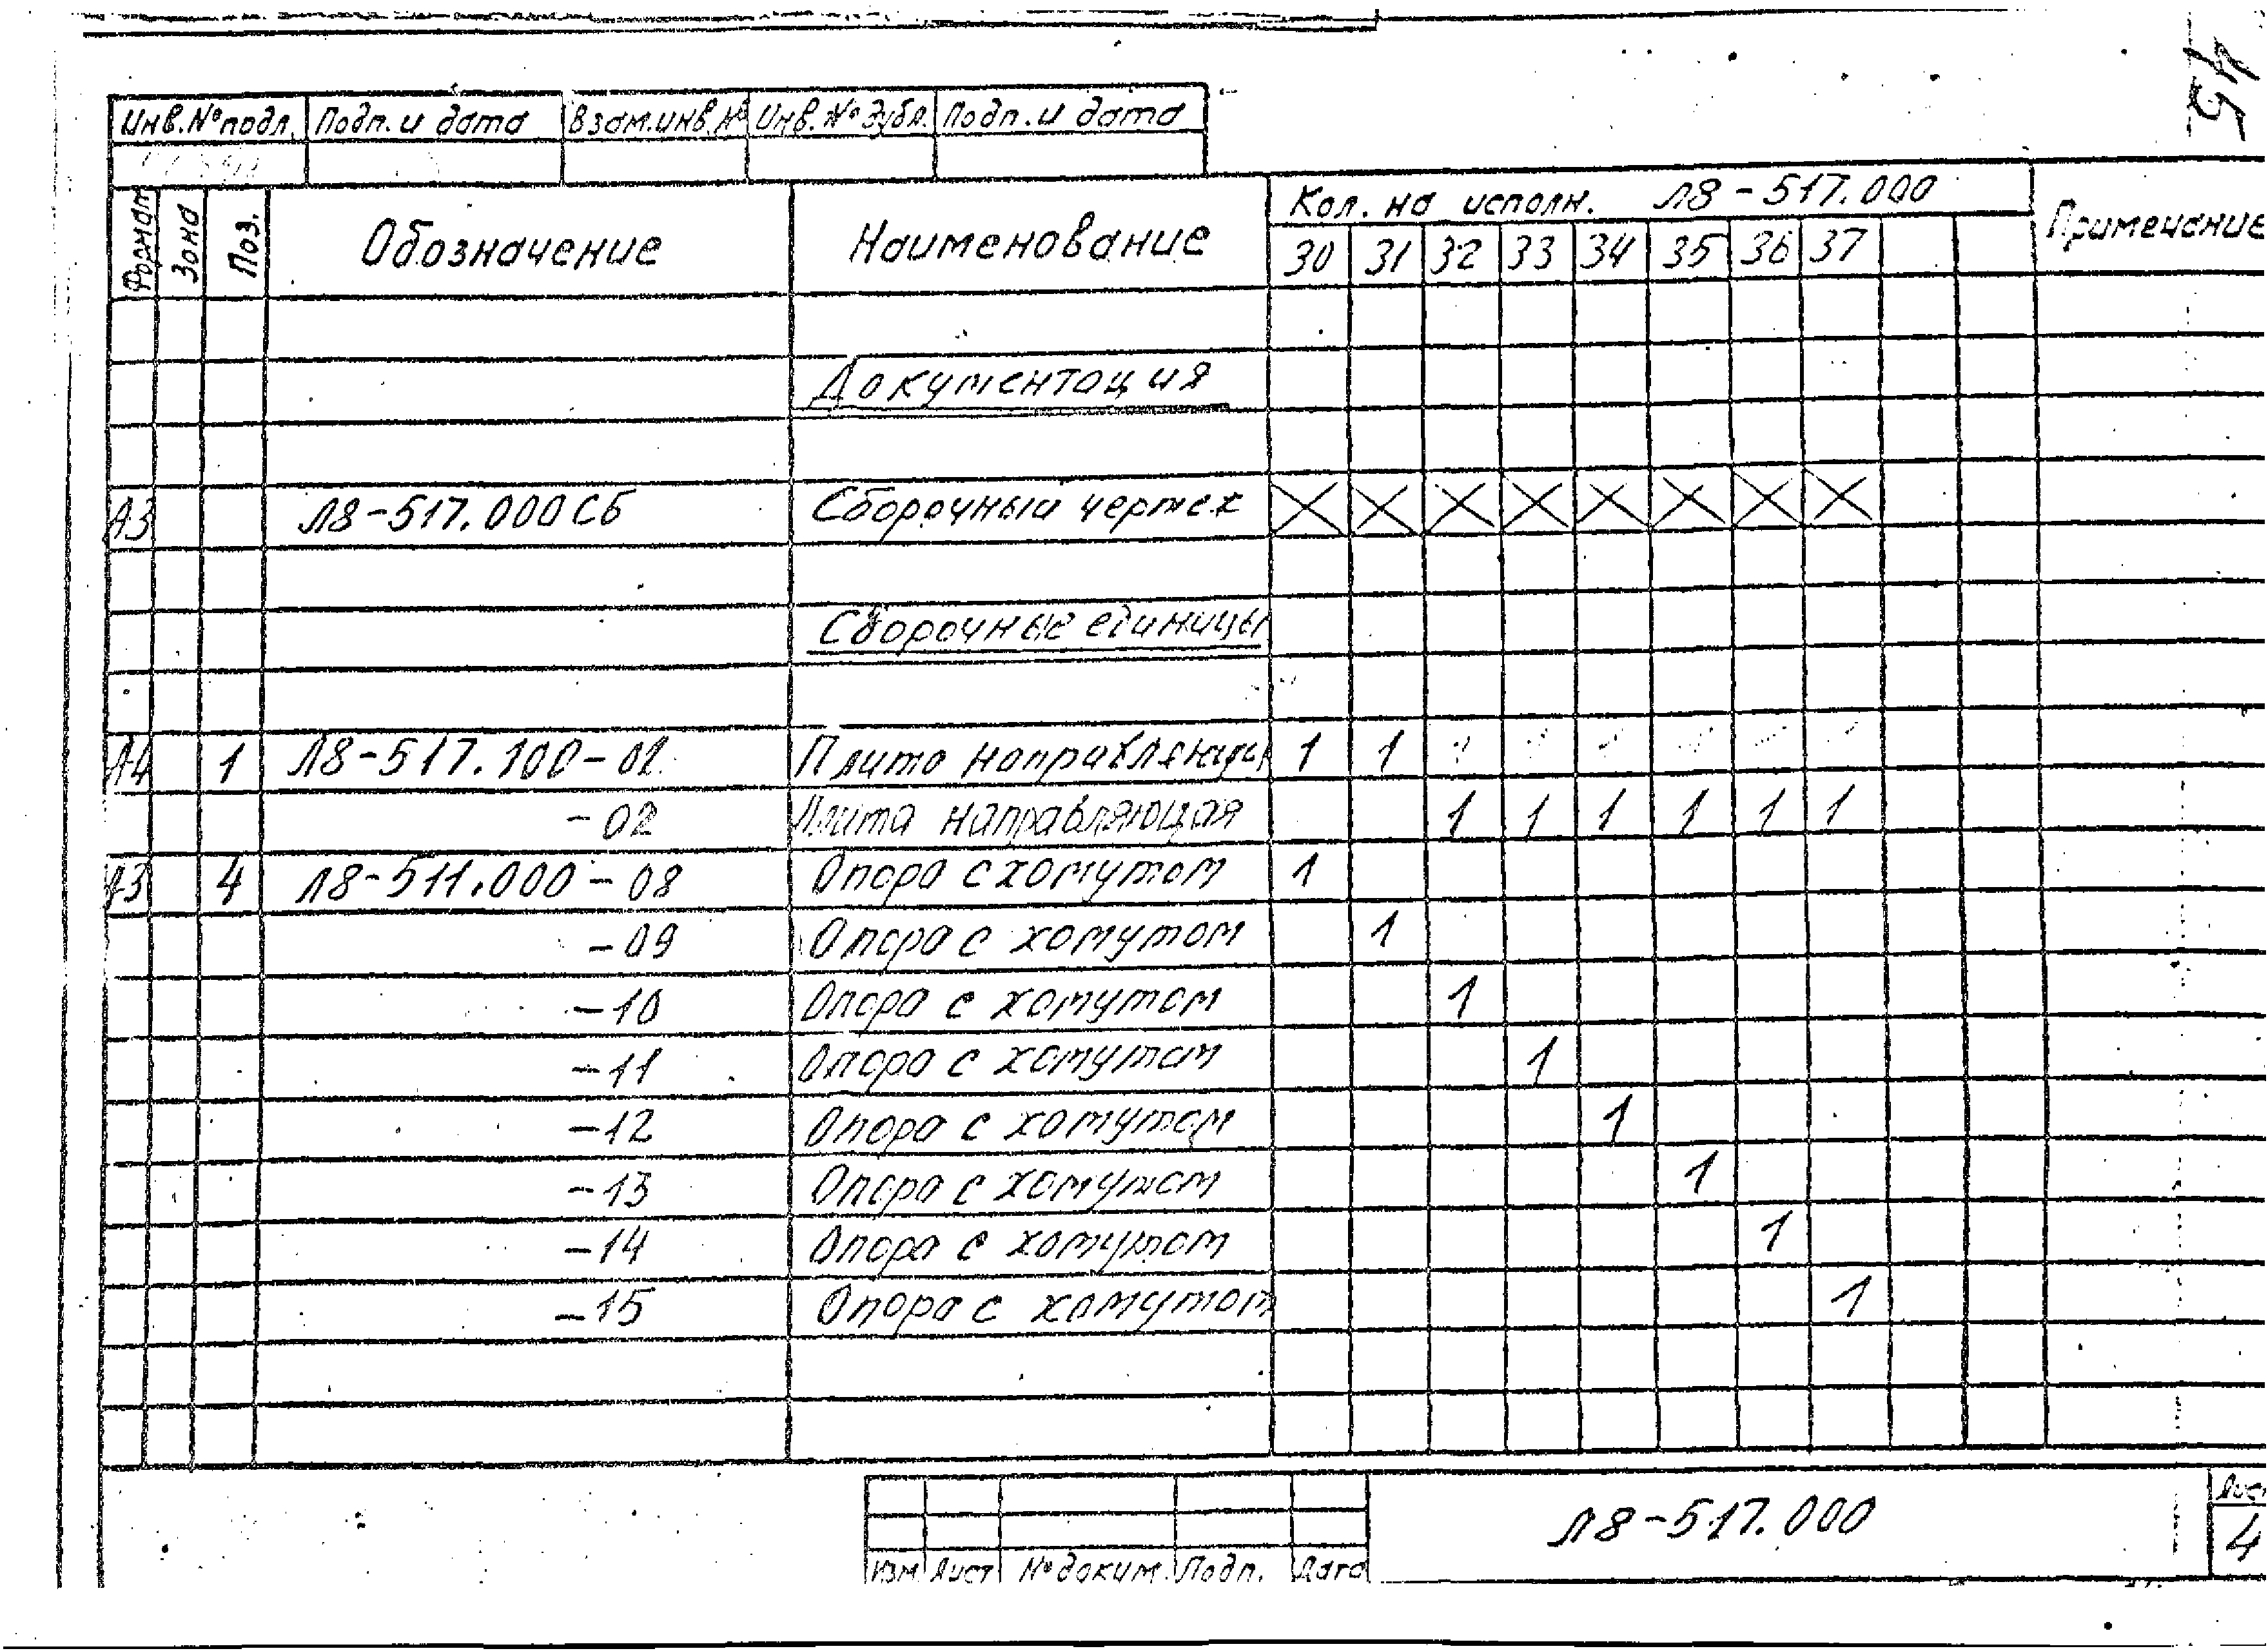 45
Инв.№подл. Подп. и дата Взам.инв.№ Инв.№дубл. Подп. и дата
Формат Зона Поз. Обозначение Наименование Кол. на исполн. Л8-517.000 Примечание
30 31 32 33 34 35 36 37
Документация
А3 Л8-517.000СБ Сборочный чертеж
Сборочные единицы
А4 1 Л8-517.100- Плита направляющ 1 1
-02 Плита направляющая 1 1 1 1 1 1
А3 4 Л8-511.000-08 Опора с хомутом 1
-09 Опора с хомутом 1
-10 Опора с хомутом 1
-11 Опора с хомутом 1
-12 Опора с хомутом 1
-13 Опора с хомутом 1
-14 Опора с хомутом 1
-15 Опора с хомутом 1
Л8-517.000 Лист
4
Изм Лист №докум. Подп. Дата